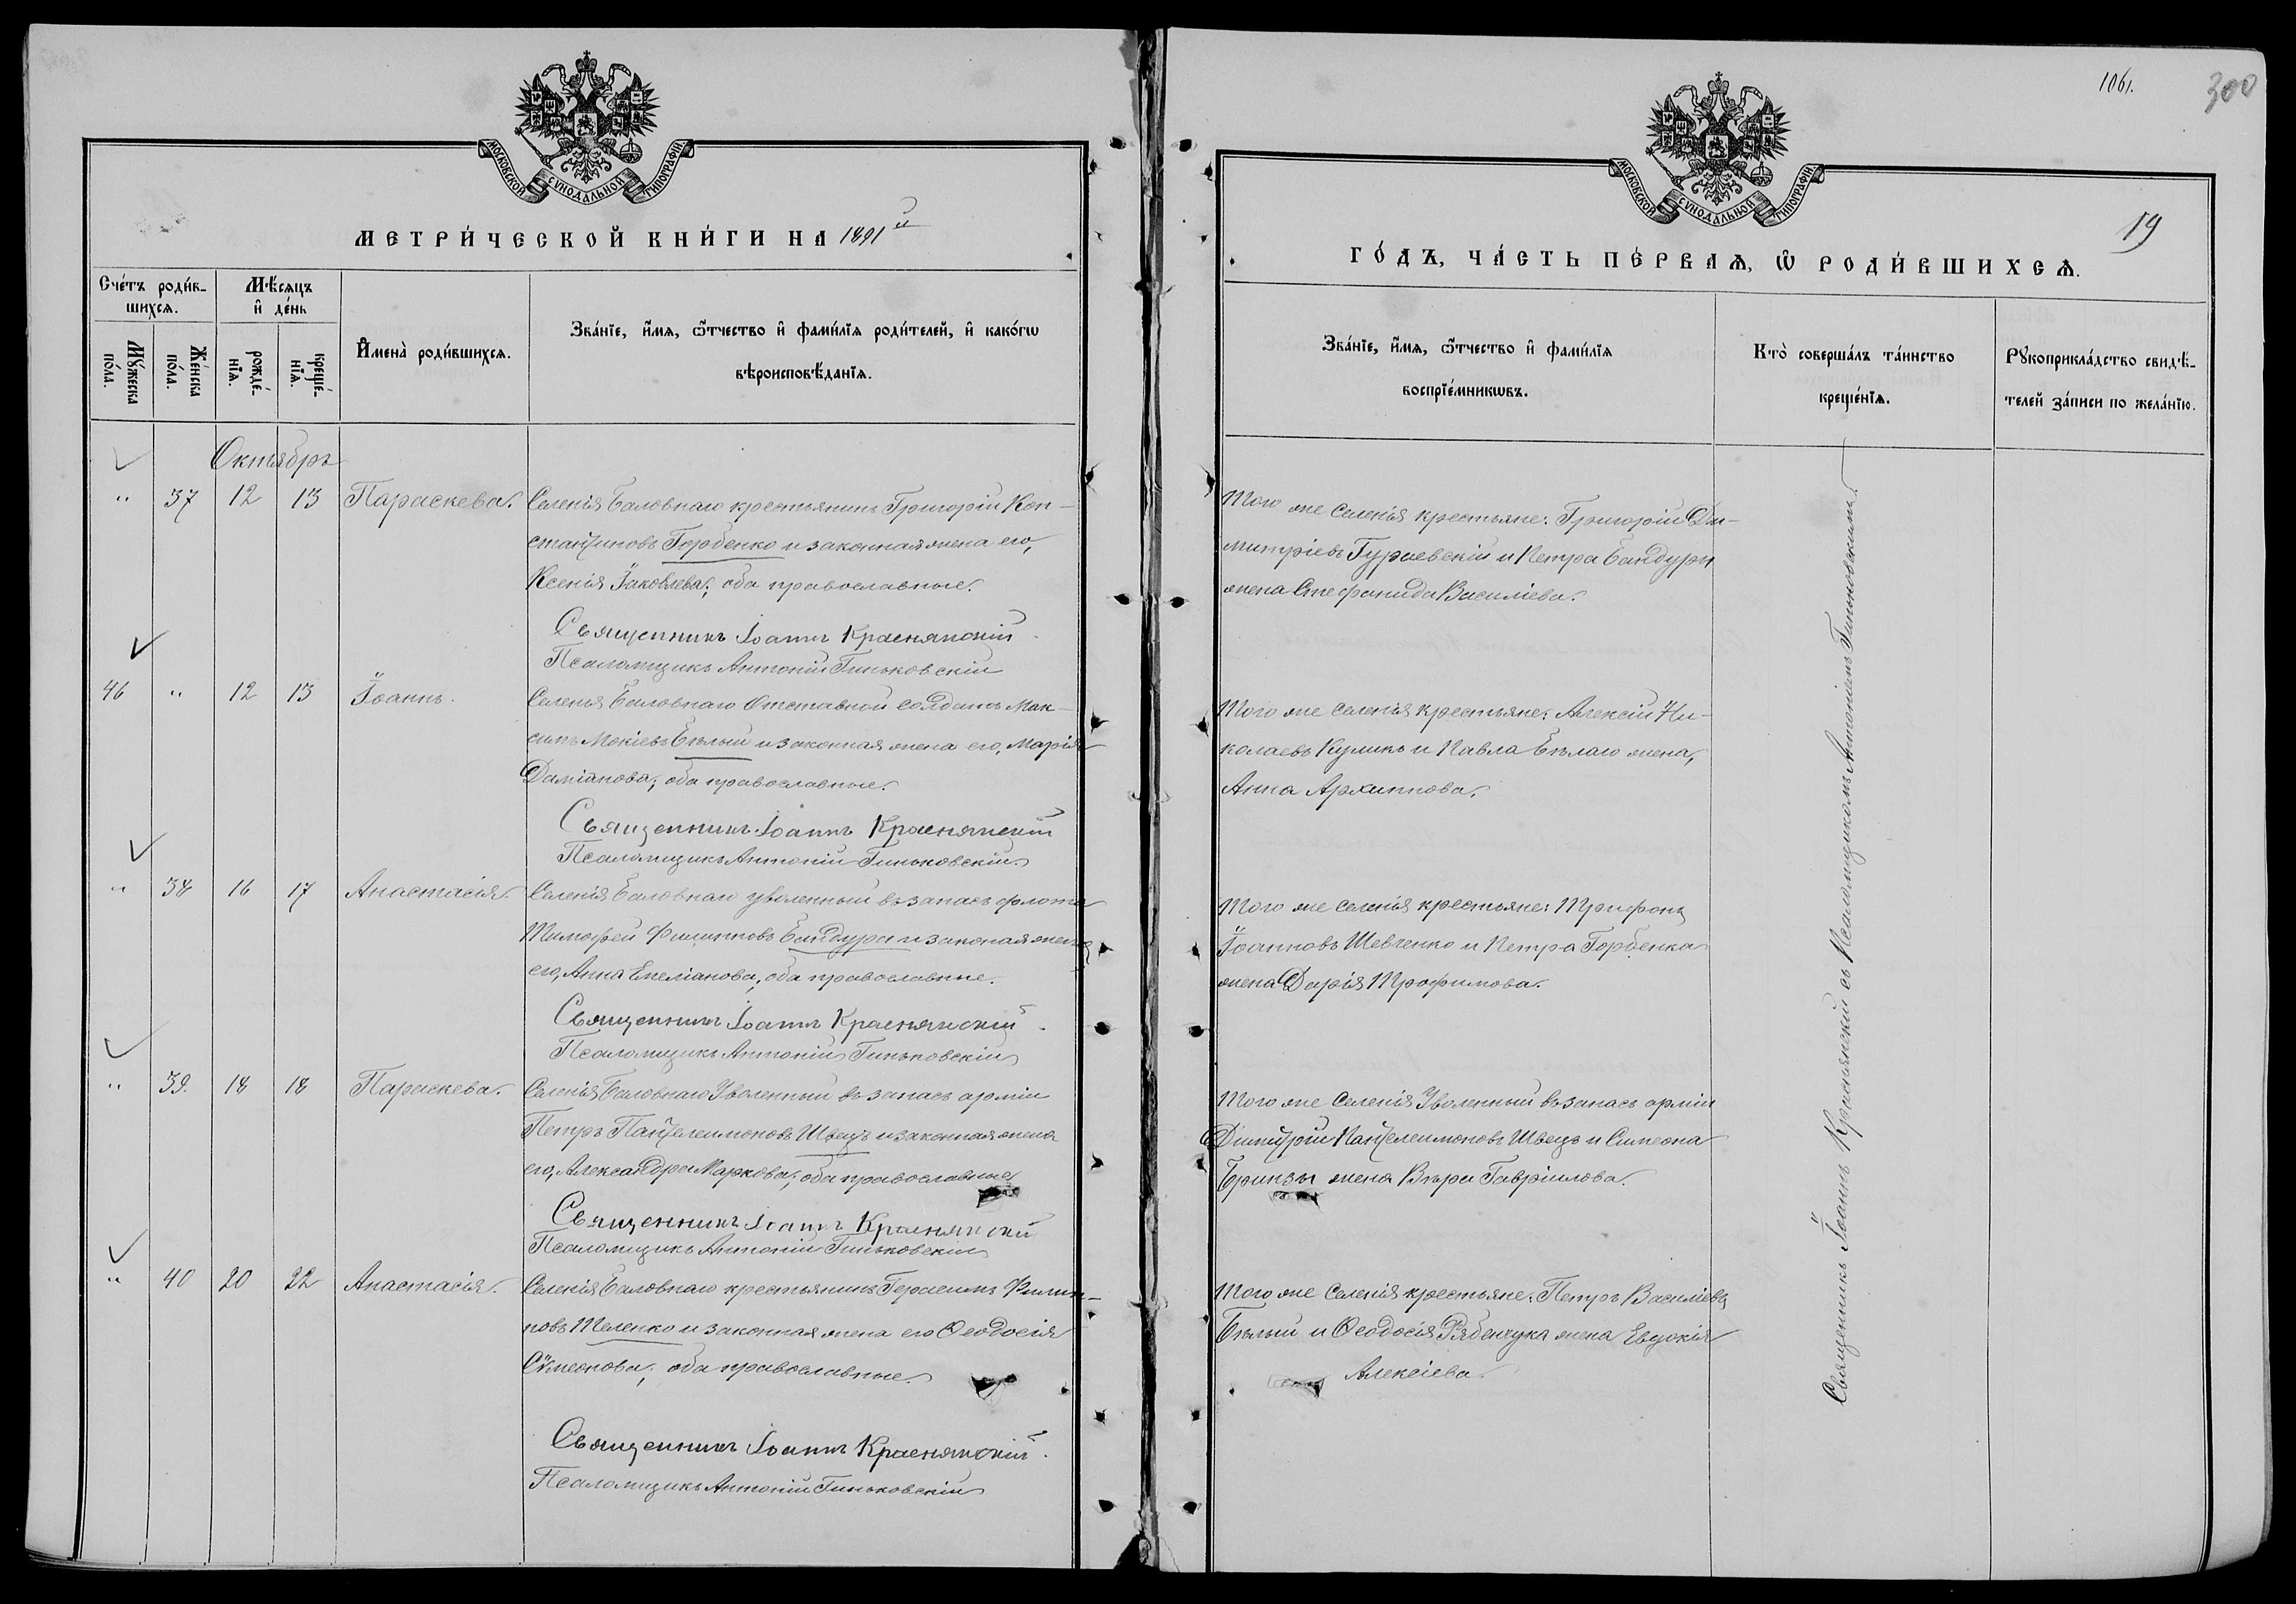 МОСКОВСКОЙ СѴНОДАЛЬНОЙ ТИПОГРАФІИ
МЕТРИ́ЧЕСКОЙ КНИ́ГИ НА 1891 й
Сче́тъ роди́в-
шихсѧ.
Мꙋ́жеска
по́ла.
Же́нска
по́ла.
Мѣ́сяцъ
и҆ де́нь
рожде́-
нїѧ.
креще́-
нїѧ.
И҆мена̀ роди́вшихсѧ.
Зва́нїе, и҆́мѧ, ѻ҆́тчество и҆ фами́лїѧ роди́телей, и҆ како́гѡ
вѣроисповѣ́данїѧ.
Октябрь
" 37 12 13 Параскева. Селенія Баловнаго крестьянинъ Григорій Кон-
стантиновъ Горбенко и законная жена его,
Ксенія Іаковлева; оба православные.
Священникъ Іоаннъ Краснянскій.
Псаломщикъ Антоній Гиньковскій
46 " 12 13 Іоаннъ. Селенія Баловнаго Отставной солдатъ Мак-
симъ Мокіевъ Бѣлый и законная жена его, Марія
Даміанова; оба православные.
Священникъ Іоаннъ Краснянскій
Псаломщикъ Антоній Гиньковскій
" 38 16 17 Анастасія. Селенія Баловнаго уволенный въ запасъ флота
Тимофей Филипповъ Бандура и законая жена
его, Анна Емеліанова; оба православные.
Священникъ Іоаннъ Краснянскій.
Псаломщикъ Антоній Гиньковскій
" 39. 18 18 Параскева. Селенія Баловнаго Уволенный въ запасъ арміи
Петръ Пантелеимоновъ Швецъ и законная жена
его, Александра Маркова; оба православные
Священникъ Іоаннъ Краснянскій
Псаломщикъ Антоній Гиньковскій
" 40 20 22 Анастасія. Селенія Баловнаго крестьянинъ Герасимъ Филип-
повъ Теленко и законная жена его Ѳеодосія
Сѵмеонова; оба православные.
Священникъ Іоаннъ Краснянскій.
Псаломщикъ Антоній Гиньковскій
1061.
300
19
МОСКОВСКОЙ СѴНОДАЛЬНОЙ ТИПОГРАФІИ
ГО́ДЪ, ЧА́СТЬ ПЕ́РВАѦ, Ѡ҆ РОДИ́ВШИХСѦ.
Зва́нїе, и҆́мѧ, ѻ҆́тчество и҆ фами́лїѧ
воспрїе́мникѡвъ.
Кто̀ соверша́лъ та́инство
креще́нїѧ.
Рꙋкоприкла́дство свидѣ́-
телей за́писи по жела́нїю.
Того же селенія крестьяне: Григорій Ди-
митріевъ Гураевскій и Петра Бандуры
жена Стефанида Василіева.
Того же селенія крестьяне: Алексій Ни-
колаевъ Куликъ и Павла Бѣлаго жена,
Анна Архиппова.
Того же селенія крестьяне: Трифонъ
Іоанновъ Шевченко и Петра Горбенка
жена Дарія Трофимова.
Того же Селенія Уволенный въ запасъ арміи
Димитрій Пантелеимоновъ Швецъ и Симеона
Бринзы жена Вѣра Гавріилова.
Того же Селенія крестьяне: Петръ Василіевъ
Бѣлый и Ѳеодосія Рябенчука жена Евдокія
Алексіева.
Священникъ Іоаннъ Краснянскій съ Псаломщикомъ Антоніемъ Гиньковскимъ.